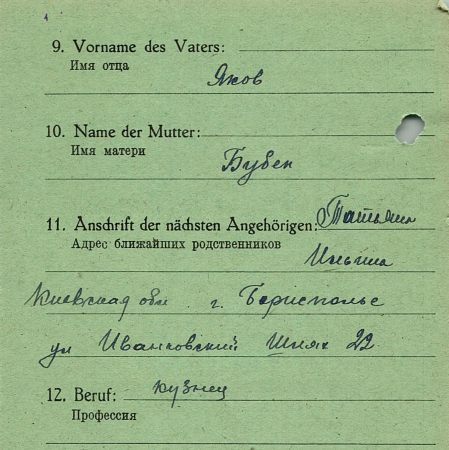 9. Vorname des Vaters:
Имя отца
Яков
10. Name der Mutter:
Имя матери
Бубен
11. Anschrift der nächsten Angehörigen: Татьяна
Адрес ближайших родственников
Ильина
Киевская обл. г. Борисполье
ул Иванковский Шлях 22
12. Beruf: кузнец
Профессия